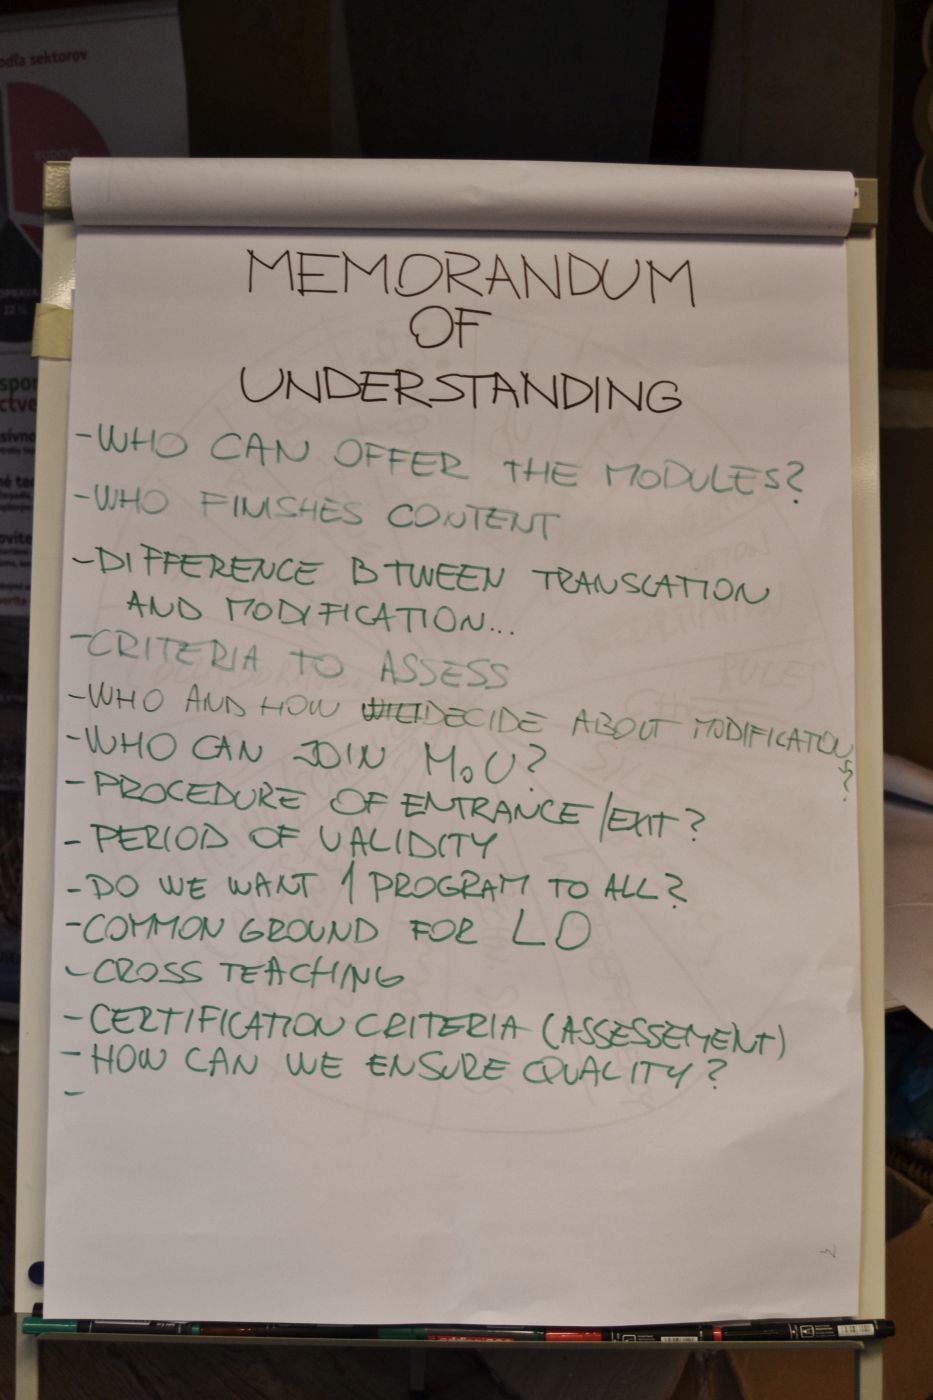 odľa sektorov
MEMORANDUM
OF
UNDERSTANDING
-WHO CAN OFFER THE MODULES?
-WHO FINISHES CONTENT
-DIFFERENCE BTWEEN TRANSLATION
AND MODIFICATION...
-CRITERIA TO ASSESS
-WHO AND HOW DECIDE ABOUT MODIFICATIONS?
-WHO CAN JOIN MoU?
-PROCEDURE OF ENTRANCE/EXIT?
-PERIOD OF VALIDITY
-DO WE WANT 1 PROGRAM TO ALL?
-COMMON GROUND FOR LO
-CROSS TEACHING
-CERTIFICATION CRITERIA (ASSESSEMENT)
-HOW CAN WE ENSURE QUALITY?
-